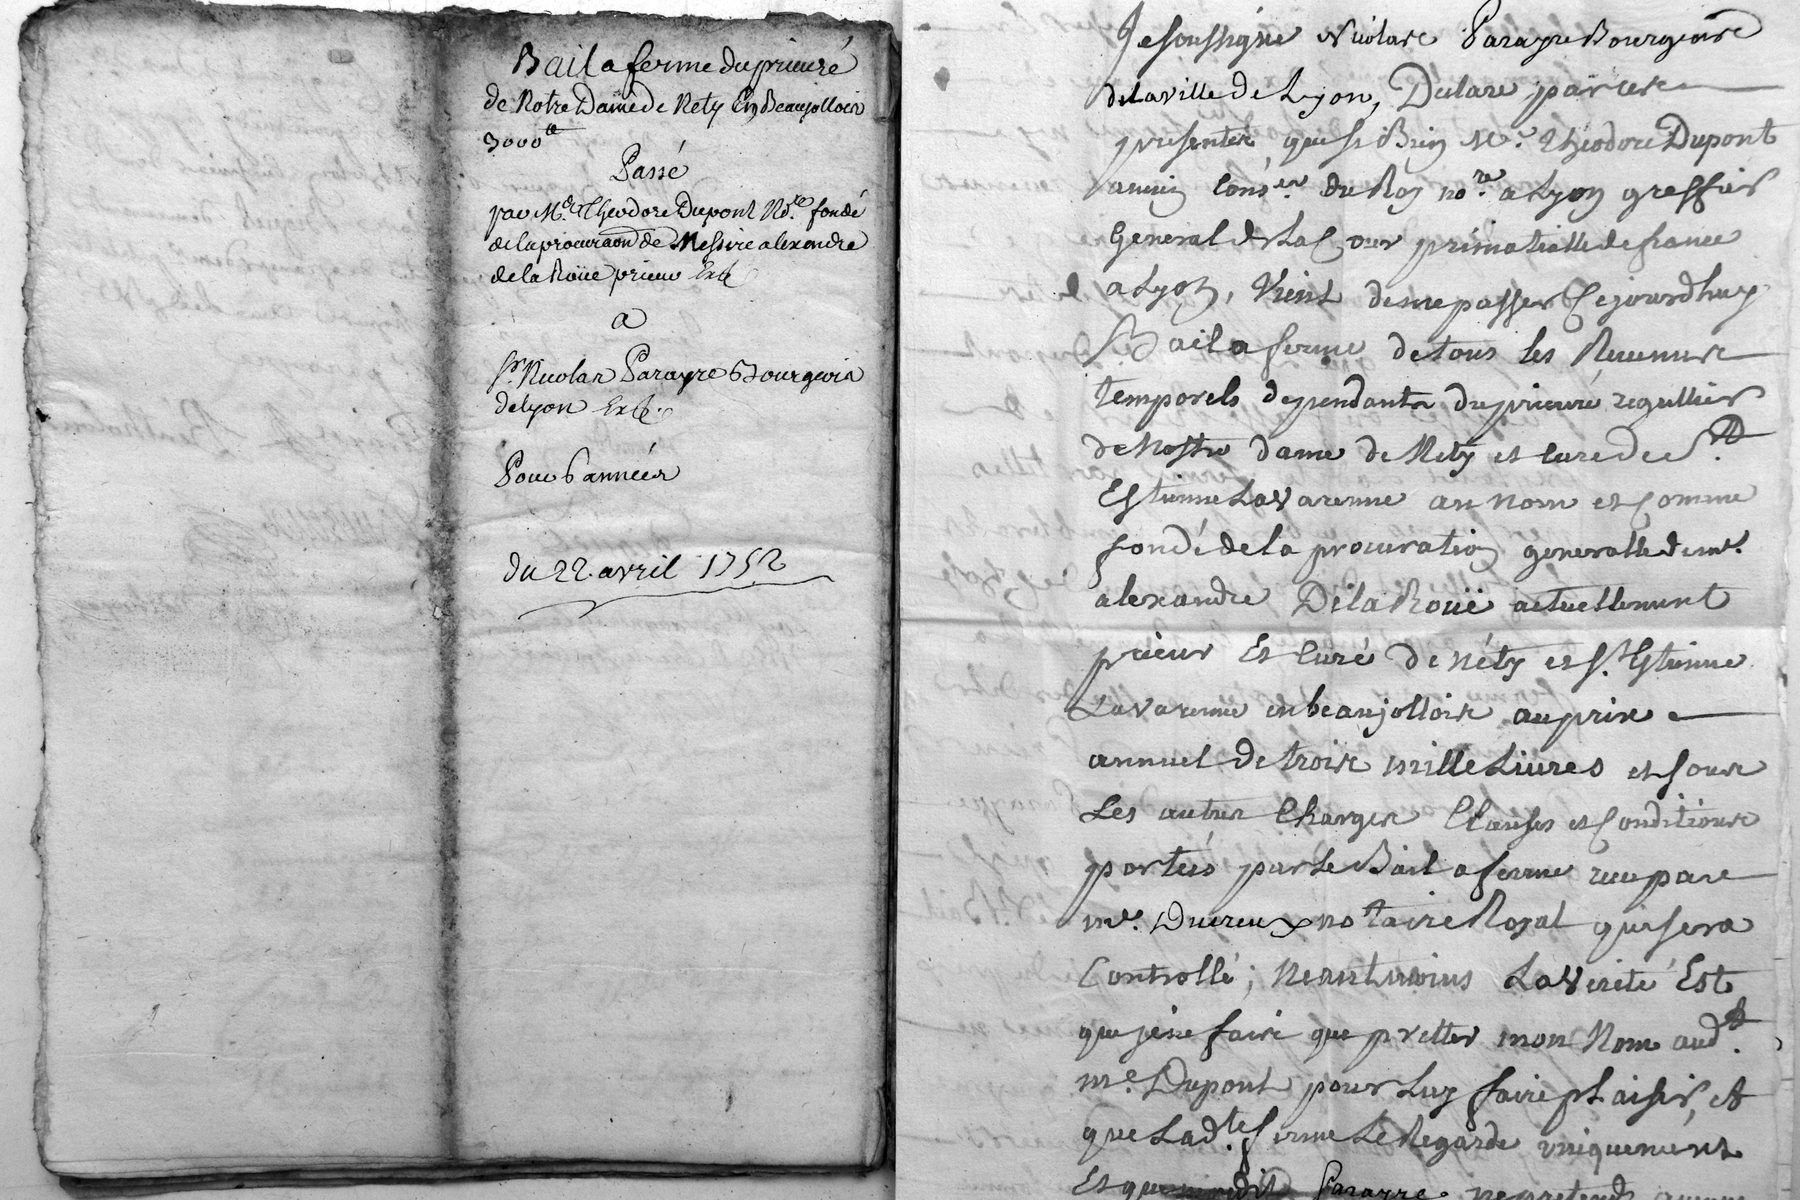 Bail a ferme du prieuré
de Notre Dame de Nety En Beaujollois
3000#
Passé
par Me. Theodore Dupont No.re fondé
de la procuraon de Messire alexandre
de la Roüe prieur
a
Sr. Nicolas Parayre Bourgeois
de lyon
Pour 6 années
du 22 avril 1752
Je soussigné Nicolas Parayre Bourgeois
de La ville de Lyon, Declare par ces
presentes que si Bien Me. Theodore Dupont
ancien Cons.er du Roy no.re a Lyon greffier
General de La Cour primatialle de france
a Lyon, Vient de me passer Cejourdhuy
Bail a ferme de tous les Revenus
temporels dependants du prieuré regullier
de Nostre dame de Nety et Cure de St.
Estienne Lavarenne au nom et Comme
fondé de la procuration generalle de me.
alexandre De la Roüe actuellement
prieur Et Curé de Néty et St. Estienne
Lavarenne en beaujollois au prix
annuel de trois mille Livres et sous
Les autres Charges Clauses et Conditions
portées par Le Bail a ferme reçu par
me. Ducreux notaire Royal qui sera
Controllé; Neantmoins La Verité Est
que je ne fais que pretter mon Nom aud.
me. Dupont pour Luy faire plaisir, et
que Lad.te ferme Le Regarde uniquement
Et que Parayre ne pretends